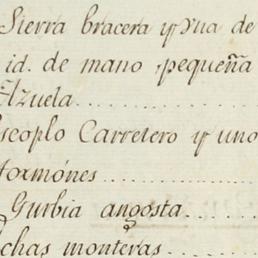 Sierra bracera y una de
id. de mano, pequeña
Azuela
scoplo Carretero y uno
formónes
Gurbia angosta
chas monteras